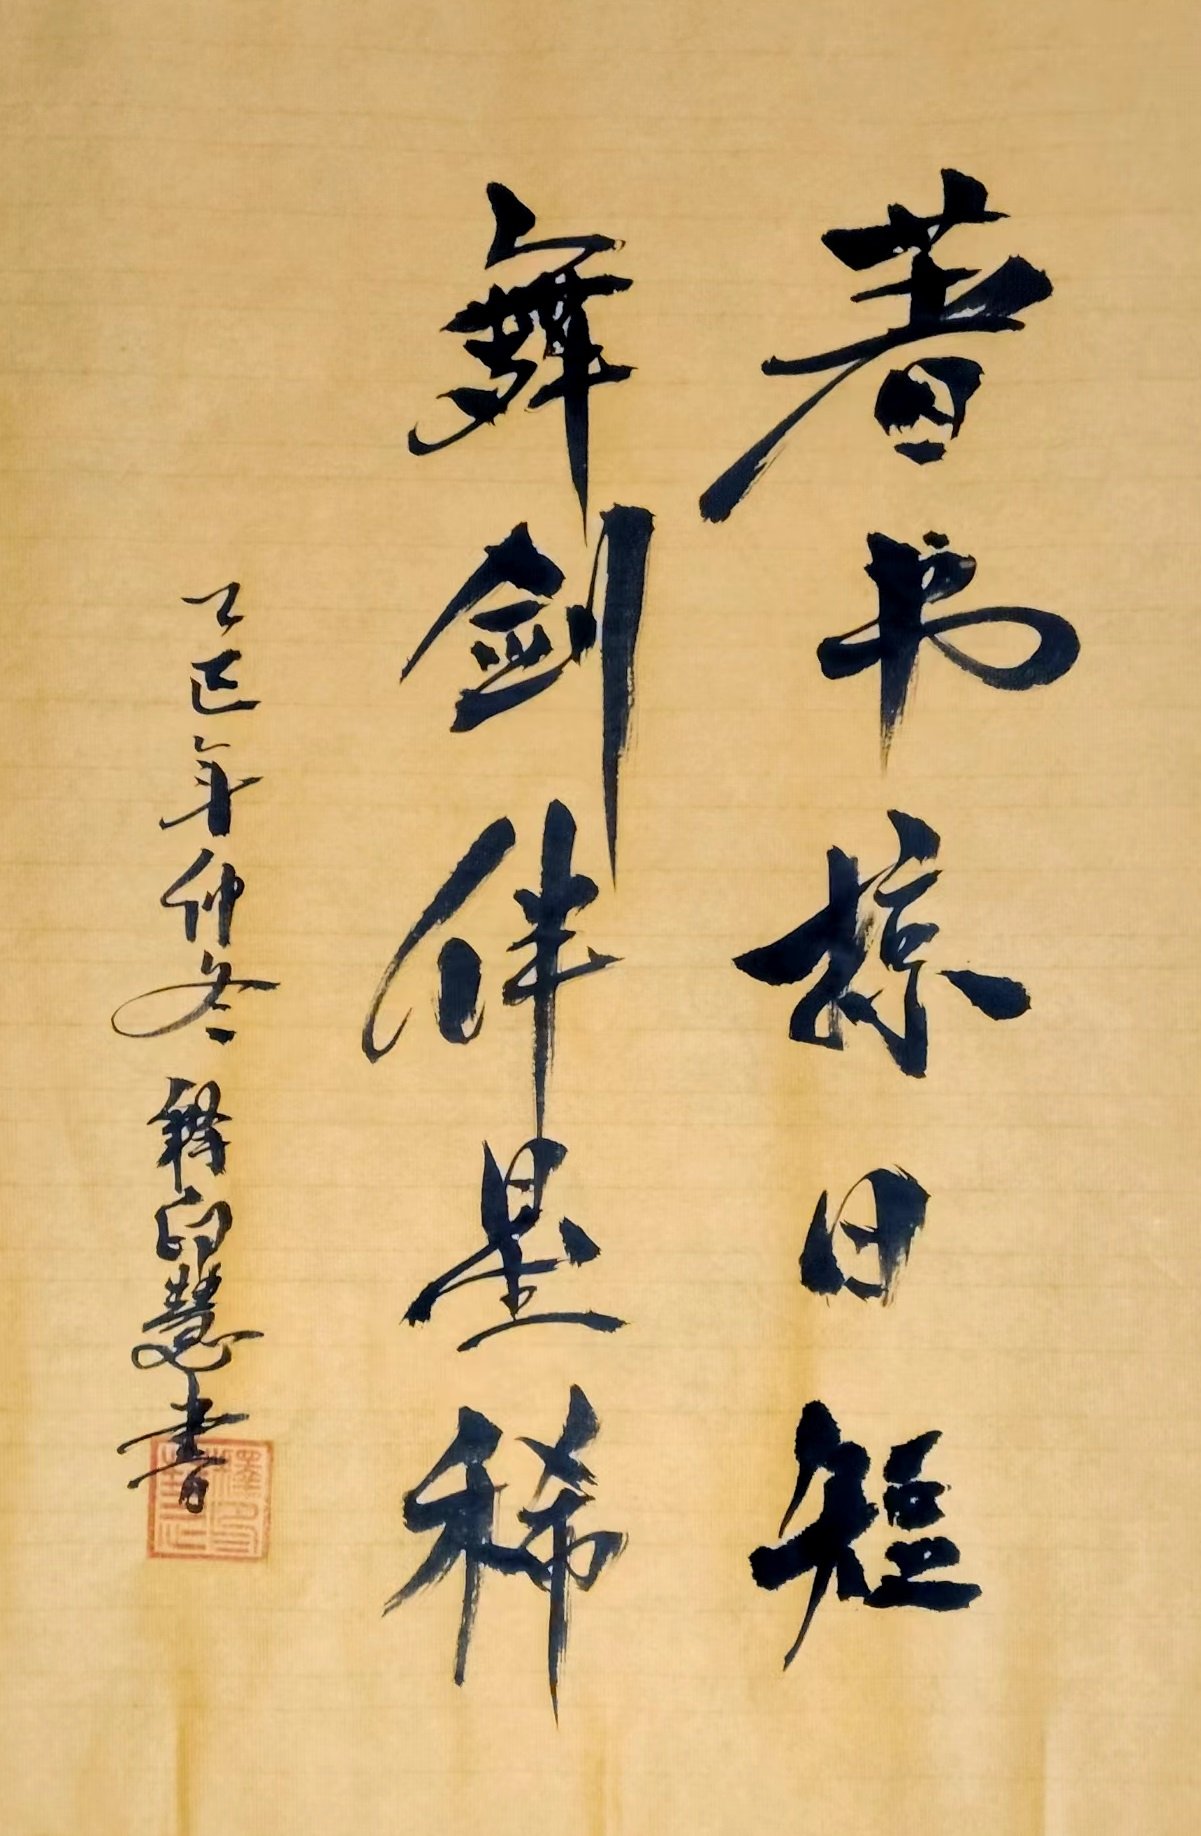 著书掠日短
舞剑伴星稀
乙巳年仲冬 释印慧书